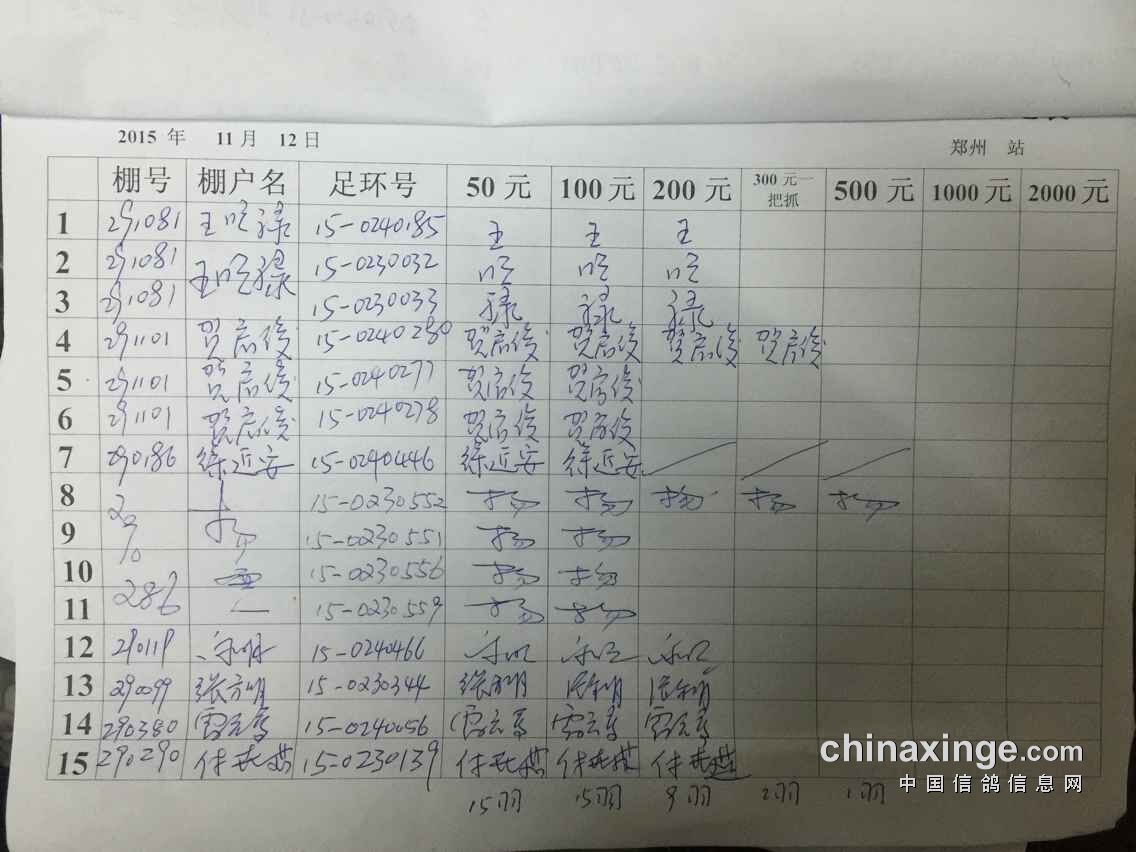 2015 年 11 月 12 日
郑州 站
棚号 棚户名 足环号 50 元 100 元 200 元 300 元一把抓 500 元 1000 元 2000 元
1 291081 15-0240185 王 王 王
2 291081 15-0230032
3 291081 15-0230033 禄 禄 禄
4 291101 贺启俊 15-0240280 贺启俊 贺启俊 贺启俊 贺启俊
5 291101 贺启俊 15-0240277 贺启俊 贺启俊
6 291101 贺启俊 15-0240278 贺启俊 贺启俊
7 290186 徐近安 15-0240446 徐近安 徐近安
8 15-0230552 杨 杨 杨 杨 杨
9 290 杨 15-0230551 杨 杨
10 15-0230556 杨 杨
11 286 15-0230559 杨 杨
12 290119 15-0240466
13 290099 15-0230344
14 290380 15-0240056
15 290290 15-0230139
15羽 15羽 9羽 2羽 1羽
chinaxinge.com
中国信鸽信息网